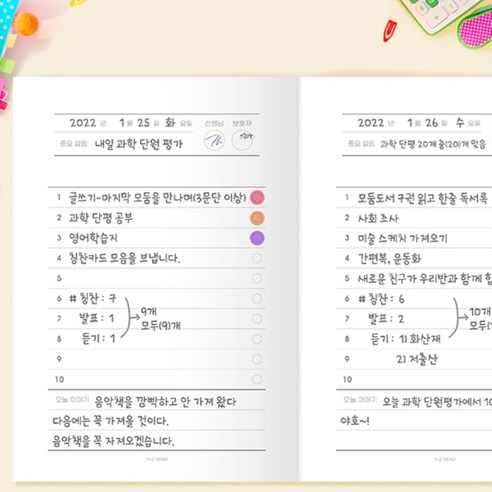 2022 년 1 월 25 일 화 요일 선생님 보호자
중요 알림 내일 과학 단원 평가
1 글쓰기-마지막 모둠을 만나며(3문단 이상)
2 과학 단평 공부
3 영어학습지
4 칭찬카드 모음을 보냅니다.
5
6 # 칭찬 : 7
7 발표 : 1
8 듣기 : 1
9개
모두(9)개
9
10
오늘 이야기 음악책을 깜빡하고 안 가져 왔다
다음에는 꼭 가져올 것이다.
음악책을 꼭 자져오겠습니다.
2022 년 1 월 26 일 수 요일
중요 알림 과학 단평 20개 중(20)개 맞음
1 모둠도서 구권 읽고 한줄 독서록
2 사회 조사
3 미술 스케치 가져오기
4 간편복, 운동화
5 새로운 친구가 우리반과 함께
6 # 칭찬 : 6
7 발표 : 2
8 듣기 : 1) 화산재
10개
모두(
9 2) 저출산
10
오늘 이야기 오늘 과학 단원평가에서 10
야호~!